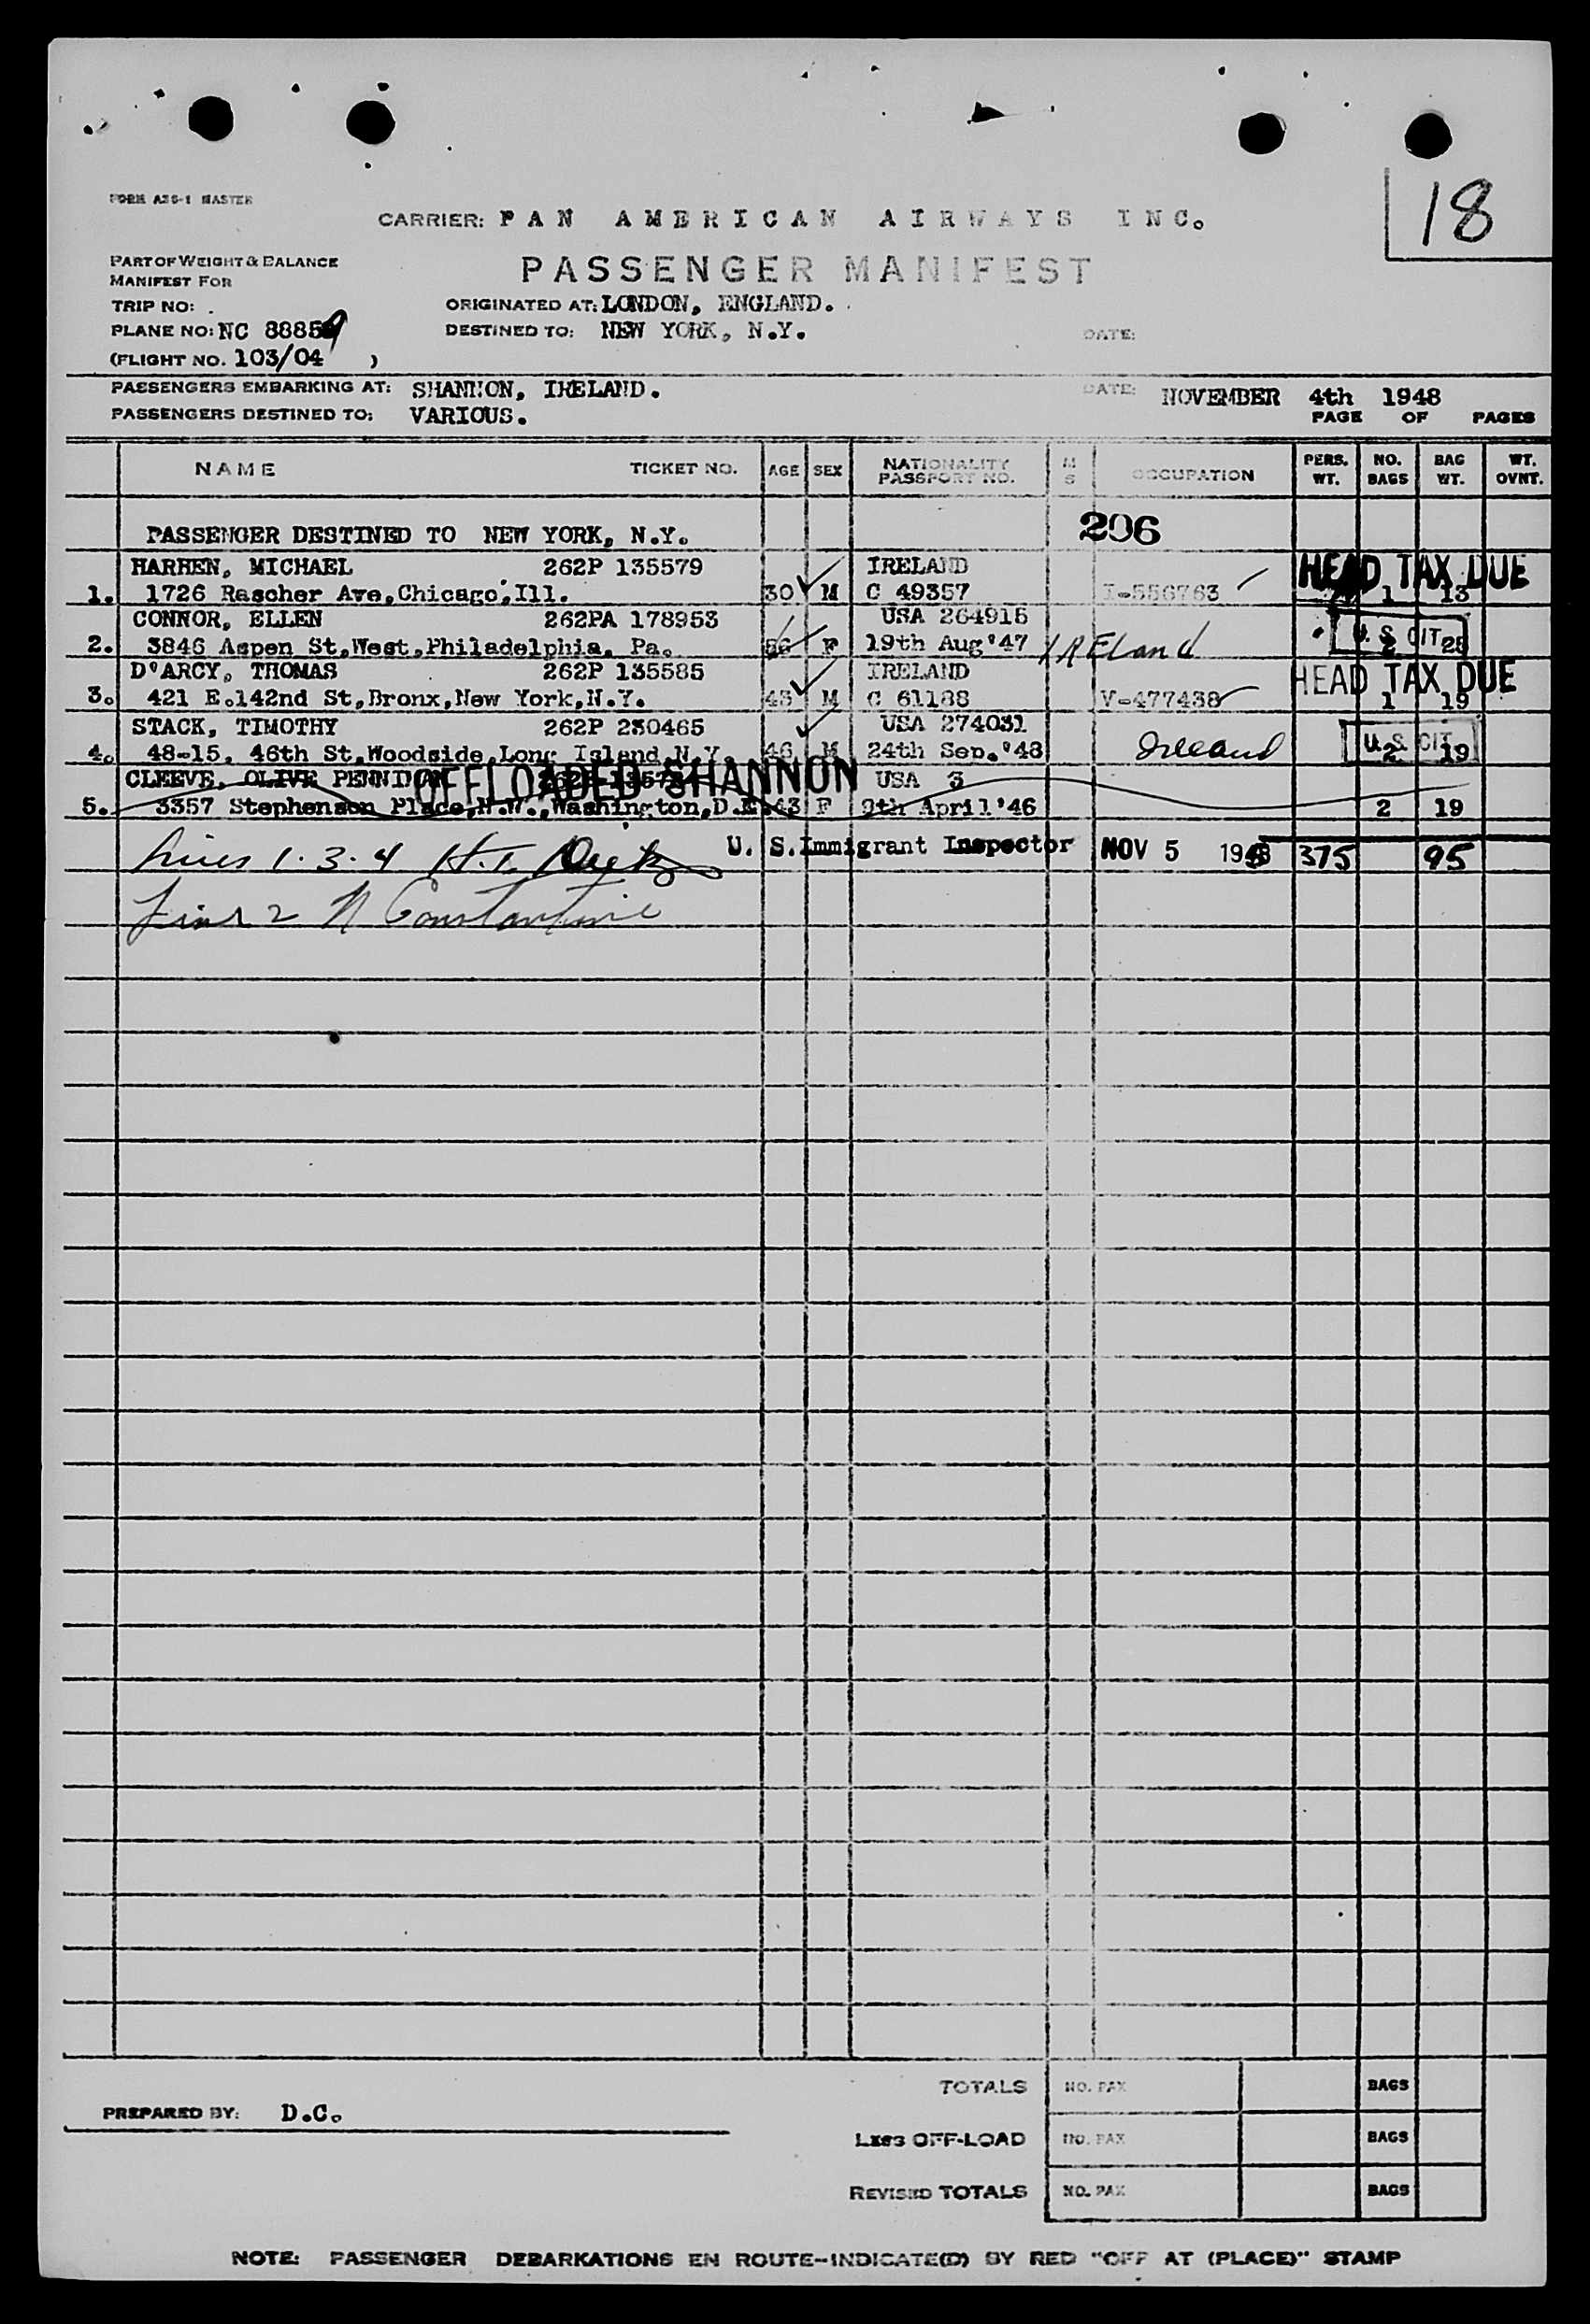 18
FORM A36-1 MASTER
CARRIER: PAN AMERICAN AIRWAYS INC.
PART OF WEIGHT & BALANCE
MANIFEST FOR
PASSENGER MANIFEST
TRIP NO: .
ORIGINATED AT: LONDON, ENGLAND.
PLANE NO: NC 88859
DESTINED TO: NEW YORK, N.Y.
DATE:
(FLIGHT NO. 103/04 )
PASSENGERS EMBARKING AT: SHANNON, IRELAND.
DATE: NOVEMBER 4th 1948
PASSENGERS DESTINED TO: VARIOUS.
PAGE OF PAGES
NAME TICKET NO. AGE SEX NATIONALITY PASSPORT NO. M S OCCUPATION PERS. WT. NO. BAGS BAG WT. WT. OVNT.
PASSENGER DESTINED TO NEW YORK, N.Y. 206
HARHEN, MICHAEL 262P 135579 IRELAND HEAD TAX DUE
1. 1726 Rascher Ave, Chicago, Ill. 30 M C 49357 I-556763 1 13
CONNOR, ELLEN 262PA 178953 USA 264915 U.S. CIT
2. 3846 Aspen St, West, Philadelphia, Pa. 56 F 19th Aug '47 IRELand 2 25
D'ARCY, THOMAS 262P 135585 IRELAND HEAD TAX DUE
3. 421 E.142nd St, Bronx, New York, N.Y. 43 M C 61188 V-477438 1 19
STACK, TIMOTHY 262P 230465 USA 274031 U.S. CIT
4. 48-15, 46th St, Woodside, Long Island, N.Y. 46 M 24th Sep. '48 Ireland 2 19
CLEEVE, OLIVE USA 3
OFFLOADED SHANNON
5. 3357 Stephenson Place, N.W., Washington, D.C. 43 F 9th April '46 2 19
Lines 1.3.4 H.T. U. S. Immigrant Inspector NOV 5 1948 375 95
Line 2 N Constantine
TOTALS NO. PAX BAGS
PREPARED BY: D.C.
LESS OFF-LOAD NO. PAX BAGS
REVISED TOTALS NO. PAX BAGS
NOTE: PASSENGER DEBARKATIONS EN ROUTE--INDICATE(D) BY RED "OFF AT (PLACE)" STAMP